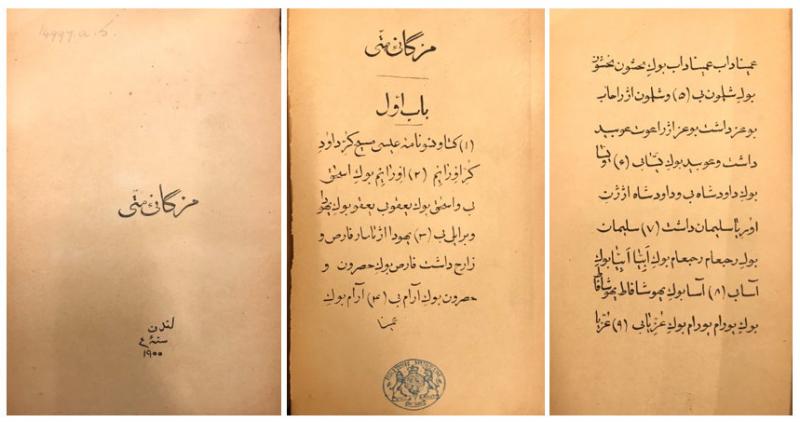 14997.a.5.
مزگانیء متّی
لندن
سنهٔ ع
۱۹۰۰
مزگانیء متّی
باب اوّل
(۱) کتاو نامهٔ عیسی مسیح کرّ داودِ
کرّ اورَاہِم (۲) اورَاہِم بوکِ اسحٰق
بی و اسحٰق بوکِ یعقوب یعقوب بوکِ یهودا
و برایلی بی (۳) یهودا اژ تامار فارص و
زارح داشت فارص بوکِ حصرون و
حصرون بوکِ آرام بی (۴) آرام بوکِ
عمینا
عمیناداب عمیناداب بوکِ نحشون نحشون
بوکِ شلمون بی (۵) و شلمون اژ راحاب
بوعز داشت بوعز اژ راعوث عوبید
داشت و عوبید بوکِ یسّا بی (۶) و یسّا
بوکِ داود شاه بی و داود شاه اژ ژنِ
اوریا سلیمان داشت (۷) سلیمان
بوکِ رحبعام رحبعام بوکِ اَبیّا اَبیّا بوکِ
آسا بی (۸) آسا بوکِ یهوشافاط یهوشافاط
بوکِ یورام یورام بوکِ عُزیّا بی (۹) عُزیّا